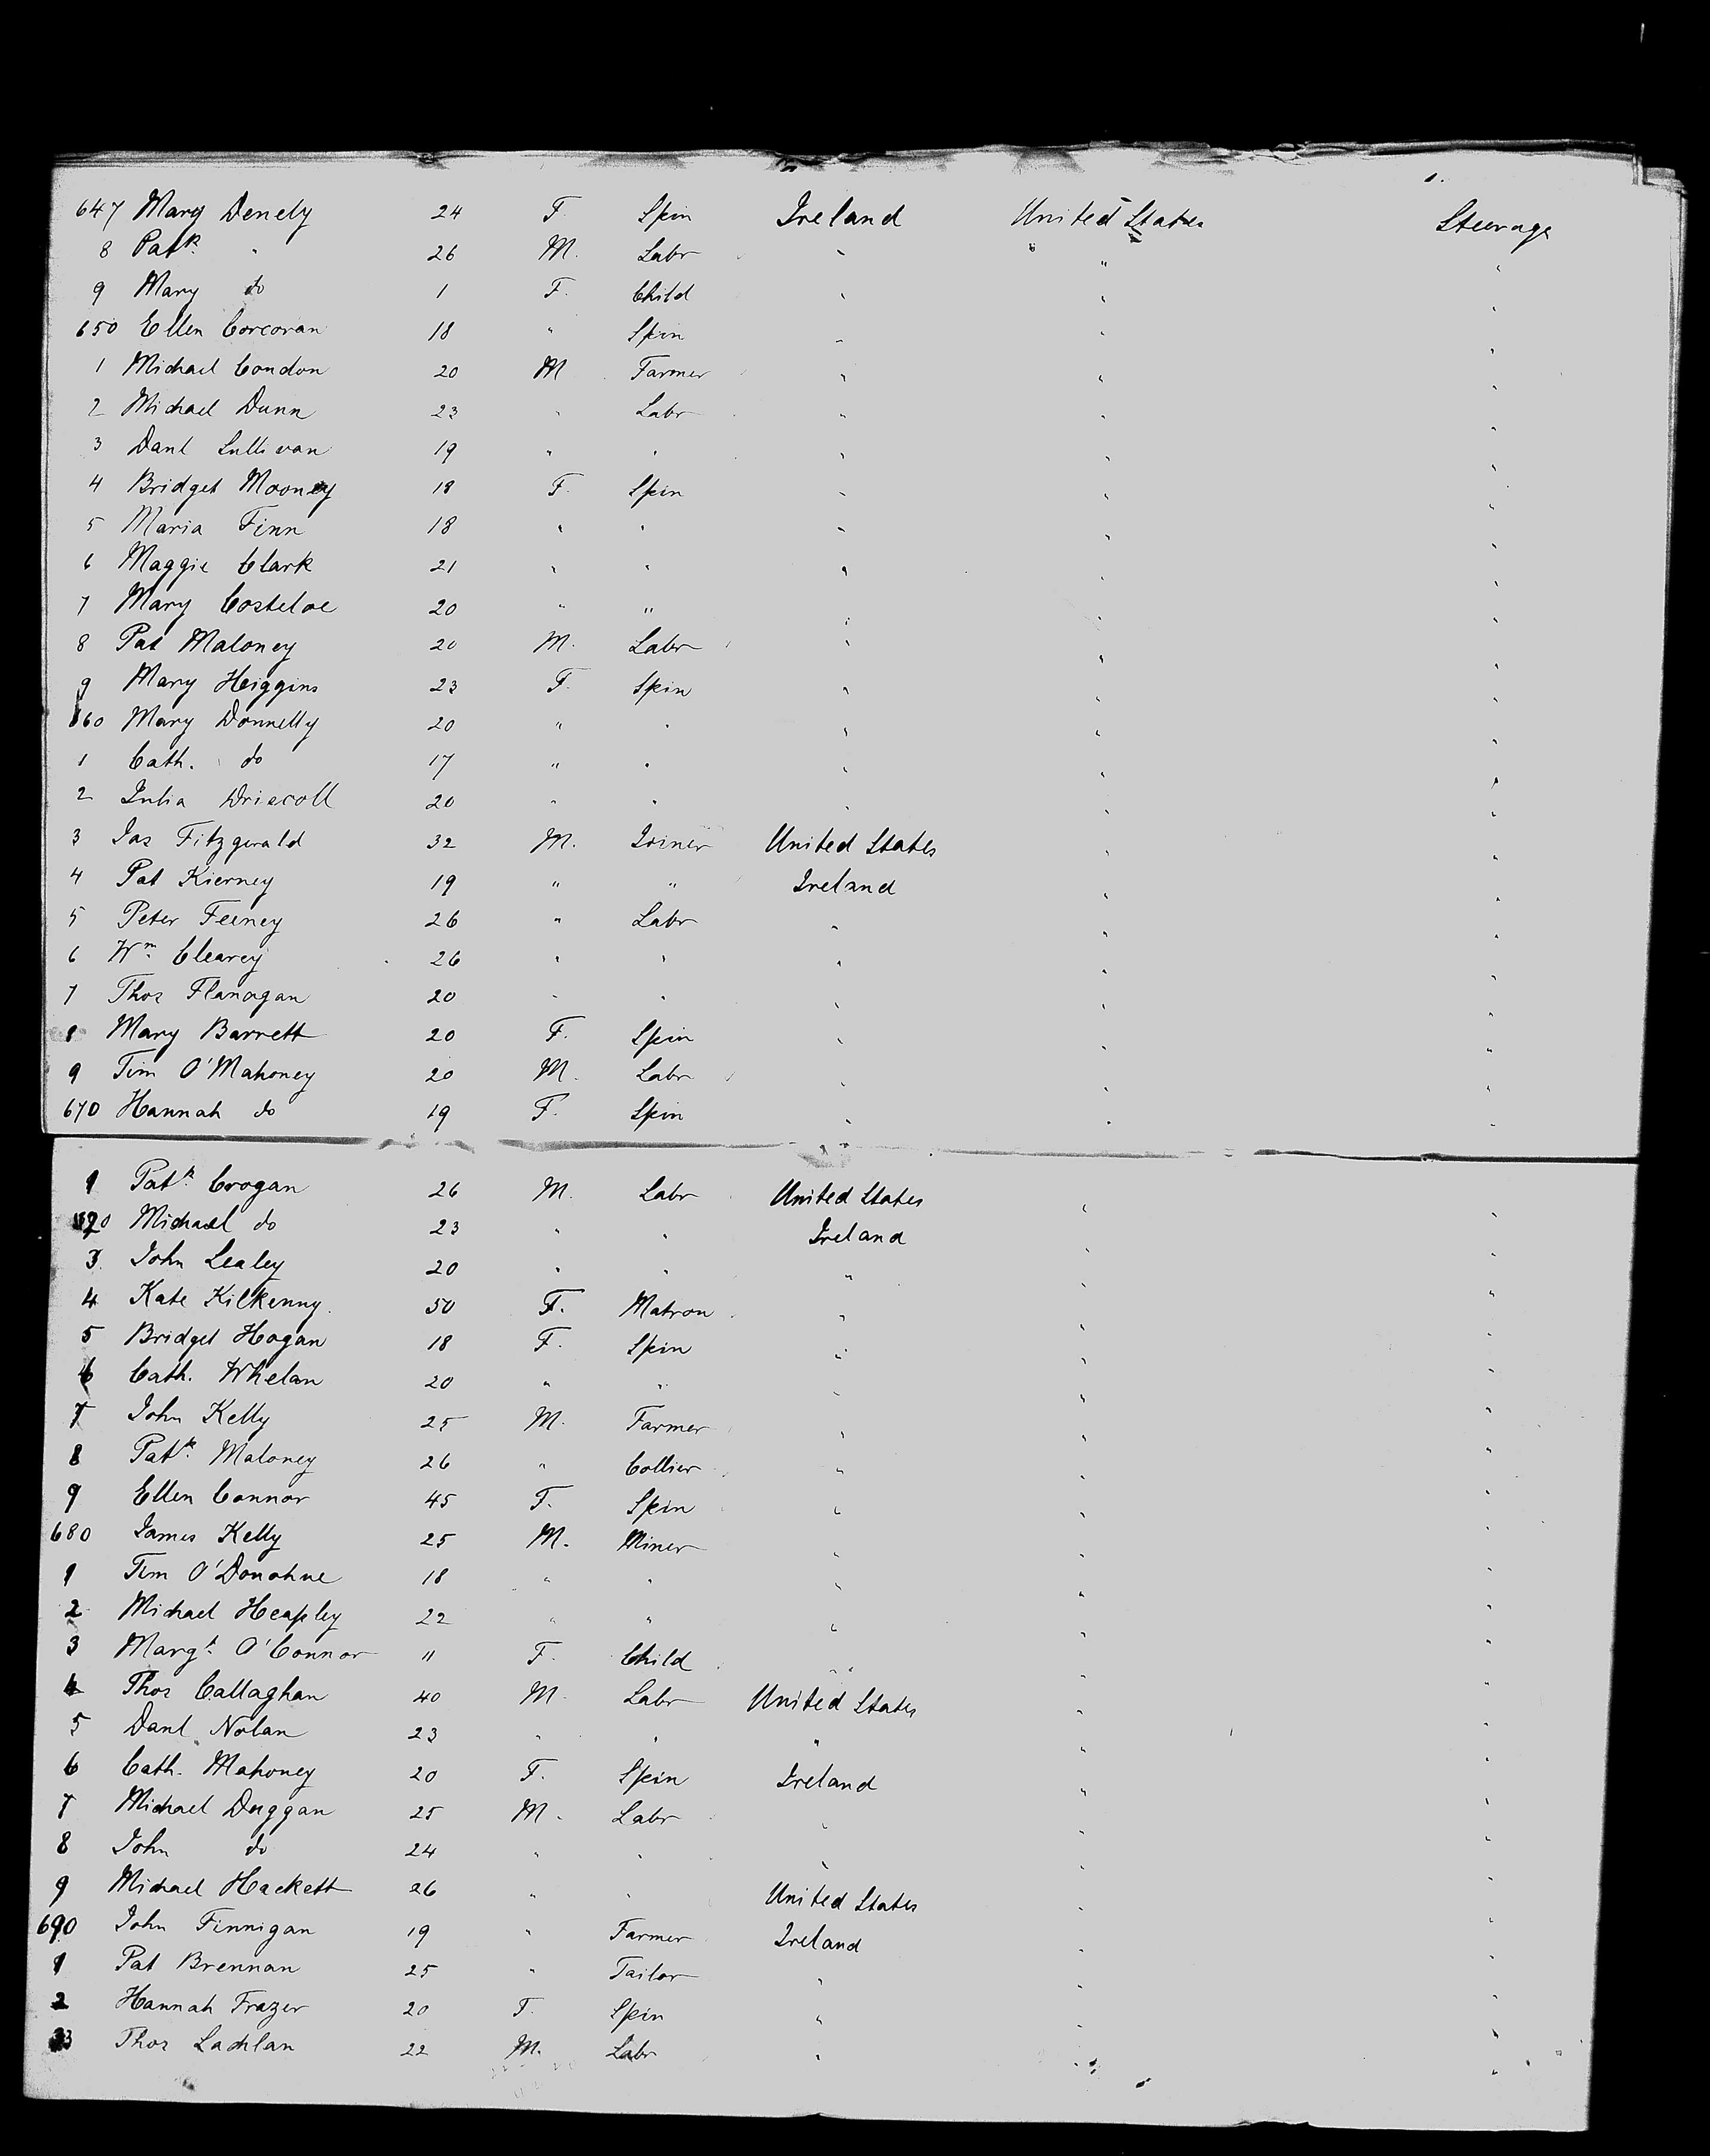 647 Mary Denely 24 F. Spin Ireland United States Steerage
8 Patk. " 26 M. Labr " " "
9 Mary do 1 F. Child " " "
650 Ellen Corcoran 18 " Spin " " "
1 Michael Condon 20 M Farmer " " "
2 Michael Dunn 23 " Labr " " "
3 Danl Sullivan 19 " " " " "
4 Bridget Mooney 18 F. Spin " " "
5 Maria Finn 18 " " " " "
6 Maggie Clark 21 " " " " "
7 Mary Casteloe 20 " " " " "
8 Pat Maloney 20 M. Labr " " "
9 Mary Heiggins 23 F. Spin " " "
660 Mary Donnelly 20 " " " " "
1 Cath. do 17 " " " " "
2 Julia Driscoll 20 " " " " "
3 Jas Fitzgerald 32 M. Joiner United States " "
4 Pat Kierney 19 " " Ireland " "
5 Peter Feeney 26 " Labr " " "
6 Wm. Clearey 26 " " " " "
7 Thos Flanagan 20 " " " " "
8 Mary Barrett 20 F. Spin " " "
9 Tim O'Mahoney 20 M. Labr " " "
670 Hannah do 19 F. Spin " " "
1 Patk. Crogan 26 M. Labr United States " "
2 Michael do 23 " " Ireland " "
3 John Lealey 20 " " " " "
4 Kate Kilkenny 50 F. Matron " " "
5 Bridget Hogan 18 F. Spin " " "
6 Cath. Whelan 20 " " " " "
7 John Kelly 25 M. Farmer " " "
8 Patk. Maloney 26 " Collier " " "
9 Ellen Connor 45 F. Spin " " "
680 James Kelly 25 M. Miner " " "
1 Tim O'Donohue 18 " " " " "
2 Michael Heapley 22 " " " " "
3 Margt. O'Connor 11 F. Child " " "
4 Thos Callaghan 40 M. Labr United States " "
5 Danl Nolan 23 " " " " "
6 Cath. Mahoney 20 F. Spin Ireland " "
7 Michael Duggan 25 M. Labr " " "
8 John do 24 " " " " "
9 Michael Hackett 26 " " United States " "
690 John Finnigan 19 " Farmer Ireland " "
1 Pat Brennan 25 " Tailor " " "
2 Hannah Frazer 20 F. Spin " " "
3 Thos Lachlan 22 M. Labr " " "